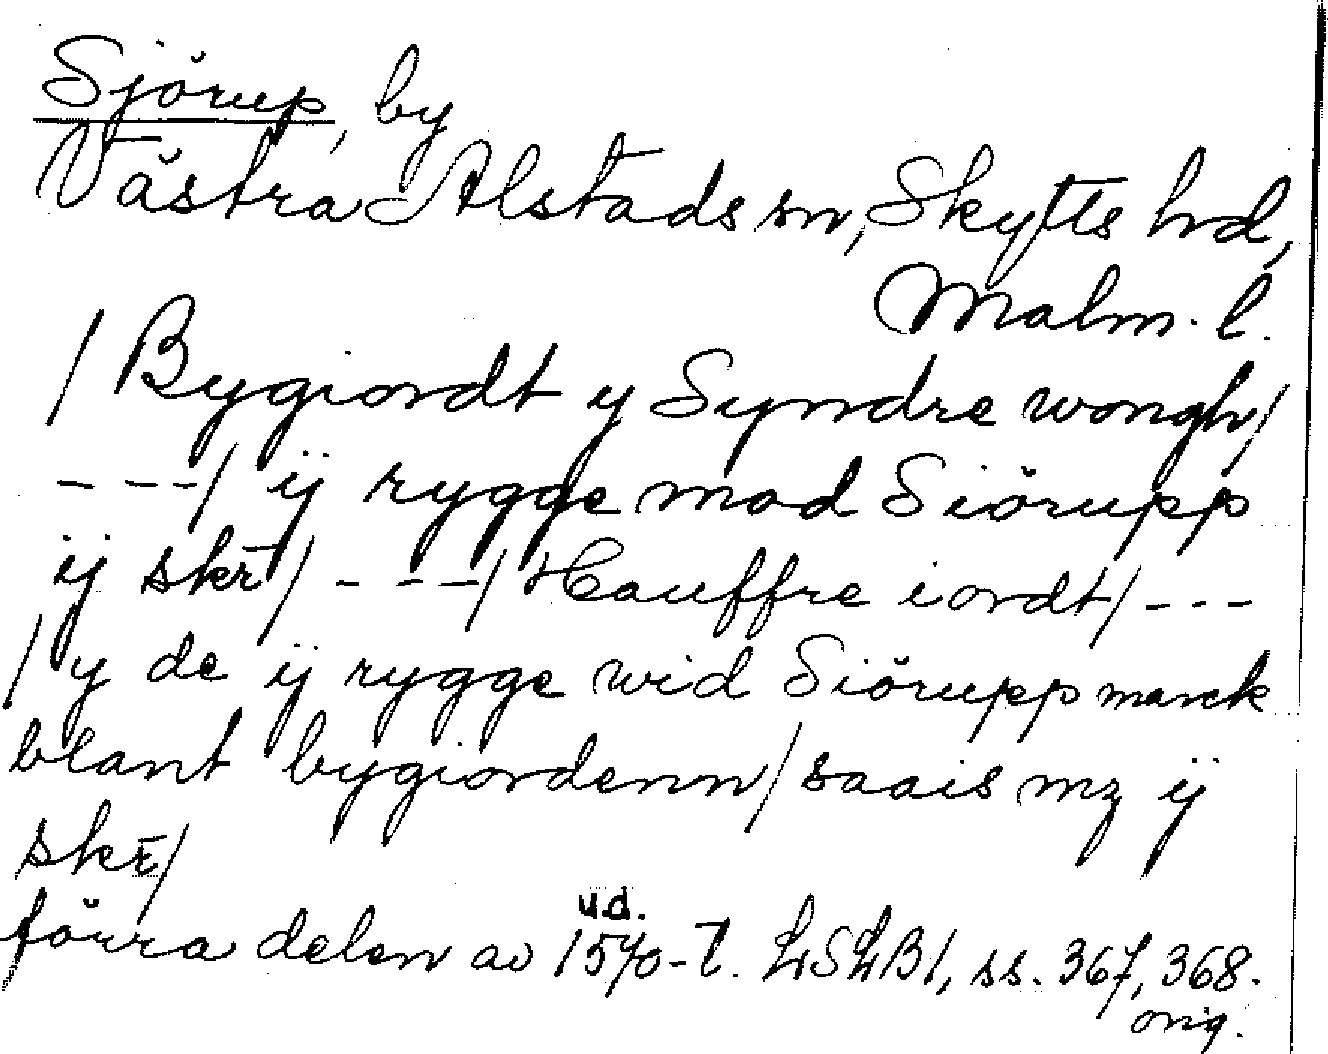 Sjörup, by
Västra Alstads sn, Skytts hd,
Malm. l.
/ Bygiordt y Syndre wongh/
- - -/ ij rygge mod Siörupp
ij skr̄/ - - -/ Hauffre iordt/ - - -
/ y de ij rygge wid Siörupp marck
blant bygiordenn/ saais mz ij
skr̄/
u.d.
förra delen av 1570-t. LSLB1, ss. 367, 368.
orig.